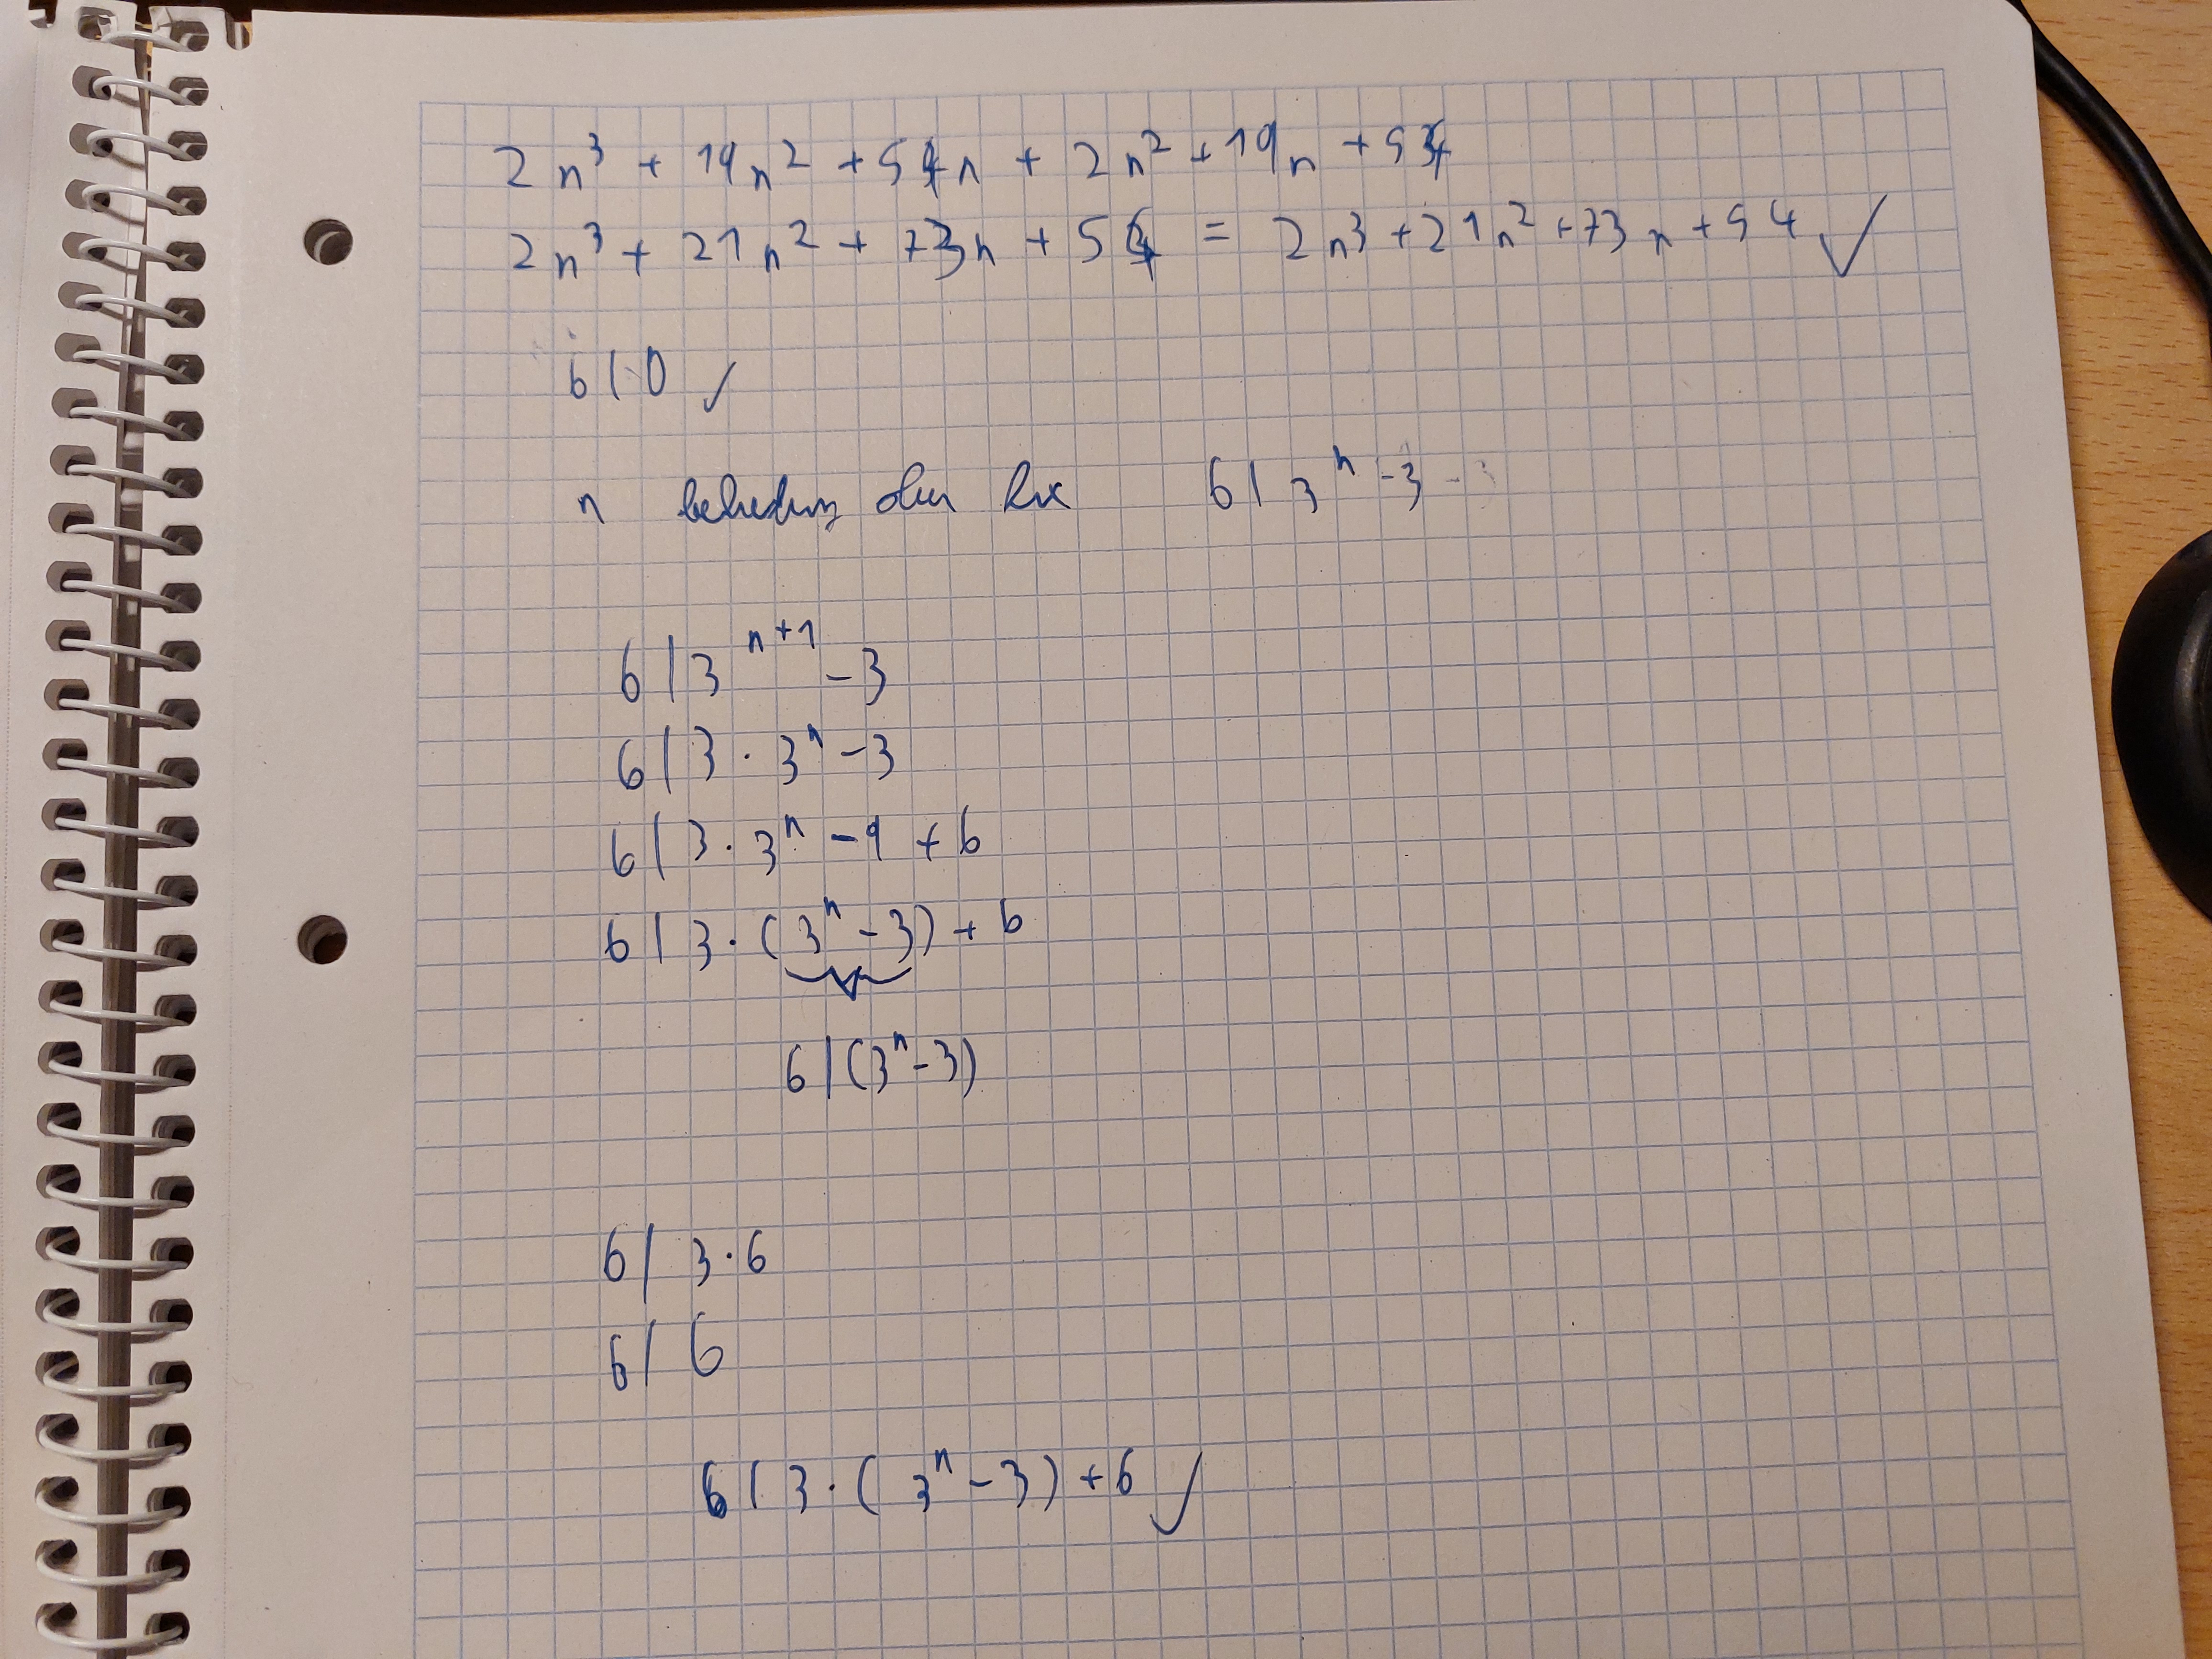 2n³ + 19n² + 54n + 2n² + 19n + 54
2n³ + 21n² + 73n + 54 = 2n³ + 21n² + 73n + 54 ✓
6 | 0 ✓
n 6 | 3ⁿ - 3
6 | 3ⁿ⁺¹ - 3
6 | 3 · 3ⁿ - 3
6 | 3 · 3ⁿ - 9 + 6
6 | 3 · (3ⁿ - 3) + 6
6 | (3ⁿ - 3)
6 | 3 · 6
6 | 6
6 | 3 · (3ⁿ - 3) + 6 ✓